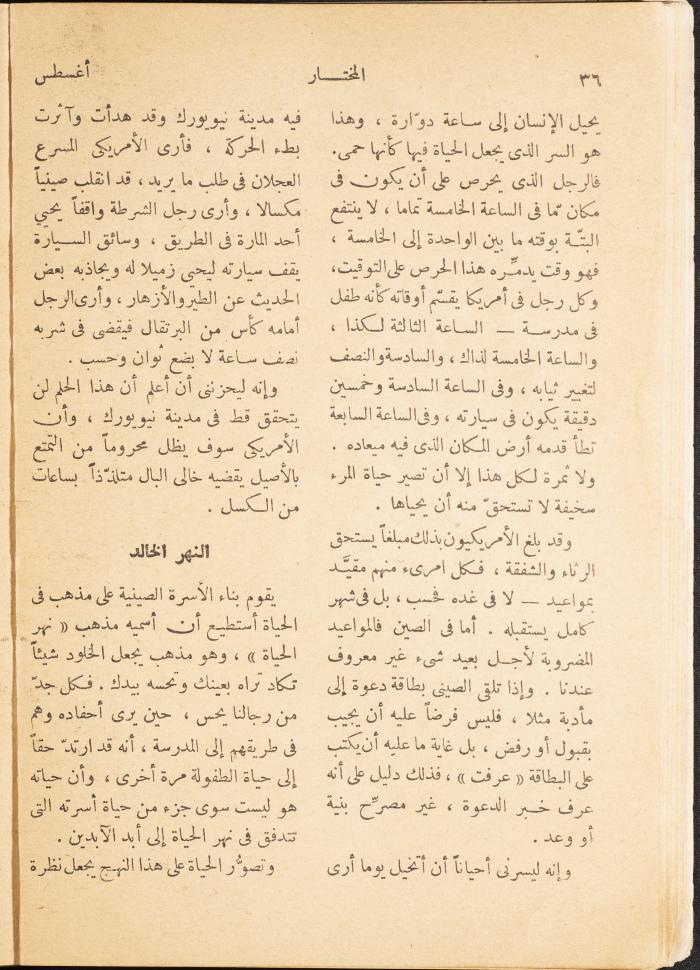 ٣٦
المختـــار
أغسطس
يحيل الإنسان إلى ساعة دوّارة ، وهذا
هو السر الذى يجعل الحياة فيها كأنها حمى.
فالرجل الذى يحرص على أن يكون فى
مكان مّا فى الساعة الخامسة تماما ، لا ينتفع
البتّـة بوقته ما بين الواحدة إلى الخامسة ،
فهو وقت يدمِّره هذا الحرص على التوقيت،
وكل رجل فى أمريكا يقسّم أوقاته كأنه طفل
فى مدرسـة — الساعة الثالثة لـكذا ،
والساعة الخامسة لذاك ، والسادسة والنصف
لتغيير ثيابه ، وفى الساعة السادسة وخمسين
دقيقة يكون فى سيارته ، وفى الساعة السابعة
تطأ قدمه أرض المـكان الذى فيه ميعاده .
ولا ثمرة لـكل هذا إلا أن تصير حياة المرء
سخيفة لا تستحقّ منه أن يحياها .
وقد بلغ الأمريكيون بذلك مبلغاً يستحق
الرثاء والشفقة ، فـكل امرىء منهم مقيَّـد
بمواعيد — لا فى غده فحسب ، بل فى شهر
كامل يستقبله . أما فى الصين فالمواعيد
المضروبة لأجـل بعيد شىء غير معروف
عندنا . وإذا تلقى الصينى بطاقة دعوة إلى
مأدبة مثلا ، فليس فرضاً عليه أن يجيب
بقبول أو رفض ، بل غاية ما عليه أن يكتب
على البطاقة « عرفت » ، فذلك دليل على أنه
عرف خـبر الدعوة ، غير مصرِّح بنية
أو وعد .
وإنه ليسرنى أحياناً أن أتخيل يوما أرى
فيه مدينة نيويورك وقد هدأت وآثرت
بطء الحركة ، فأرى الأمريكى المسرع
العجلان فى طلب ما يريد ، قد انقلب صينياً
مكسالا ، وأرى رجل الشرطة واقفاً يحيي
أحد المارة فى الطريق ، وسائق السـيارة
يقف سيارته ليحيى زميلا له ويجاذبه بعض
الحديث عن الطير والأزهار ، وأرى الرجل
أمامه كأس من البرتقال فيقضى فى شربه
نصف ساعة لا بضع ثوان وحسب .
وإنه ليحزننى أن أعلم أن هذا الحلم لن
يتحقق قط فى مدينة نيويورك ، وأن
الأمريكى سوف يظل محروماً من التمتع
بالأصيل يقضيه خالى البال متلذّذاً بساعات
من الـكسل .
النهر الخالد
يقوم بناء الأسرة الصينية على مذهب فى
الحياة أستطيع أن أسميه مذهب « نهر
الحياة » ، وهو مذهب يجعل الخلود شيئاً
تـكاد تراه بعينك وتحسه بيدك . فـكل جدّ
من رجالنا يحس ، حين يرى أحفاده وهم
فى طريقهم إلى المدرسة ، أنه قد ارتدّ حقاً
إلى حياة الطفولة مرة أخرى ، وأن حياته
هو ليست سوى جزء من حياة أسرته التى
تتدفق فى نهر الحياة إلى أبد الآبدين .
وتصوُّر الحياة على هذا النهج يجعل نظرة